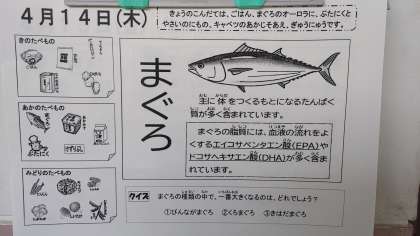 4月14日(木)
きょうのこんだては、ごはん、まぐろのオーロラに、ぶたにくと
やさいのにもの、キャベツのあかじそあえ、ぎゅうにゅうです。
きのたべもの
ごはん
あかのたべもの
ぶたにく
けずりぶし
みどりのたべもの
まぐろ
主に体をつくるもとになるたんぱく
質が多く含まれています。
まぐろの脂質には、血液の流れをよ
くするエイコサペンタエン酸(EPA)や
ドコサヘキサエン酸(DHA)が多く含ま
れています。
クイズ まぐろの種類の中で、一番大きくなるのは、どれでしょう？
①びんながまぐろ ②くろまぐろ ③きはだまぐろ